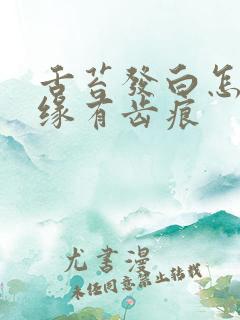 舌苔發白怎
缘有齿痕
尤書漫
未经同意禁止转载